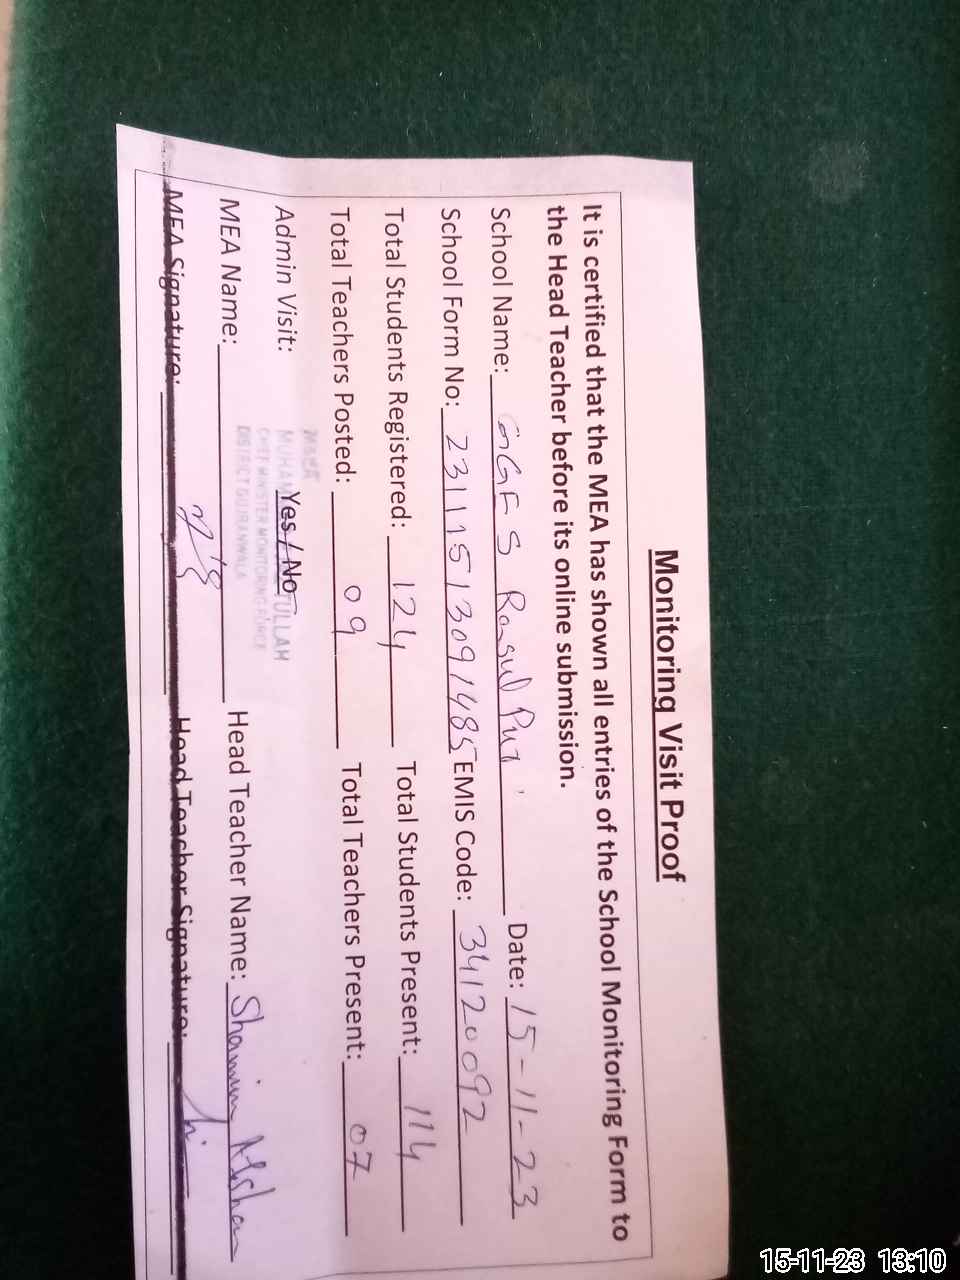 Monitoring Visit Proof
It is certified that the MEA has shown all entries of the School Monitoring Form to
the Head Teacher before its online submission.
School Name: GGES Rasul Pur Date: 15-11-23
School Form No: 23111513091485 EMIS Code: 34120092
Total Students Registered: 124 Total Students Present: 114
Total Teachers Posted: 09 Total Teachers Present: 07
Admin Visit: Yes / No
CHIEF MINISTER MONITORING FORCE
DISTRICT GUJRANWALA
MEA Name: Head Teacher Name: Shamim Afshan
MEA Signature: Head Teacher Signature:
15-11-23 13:10